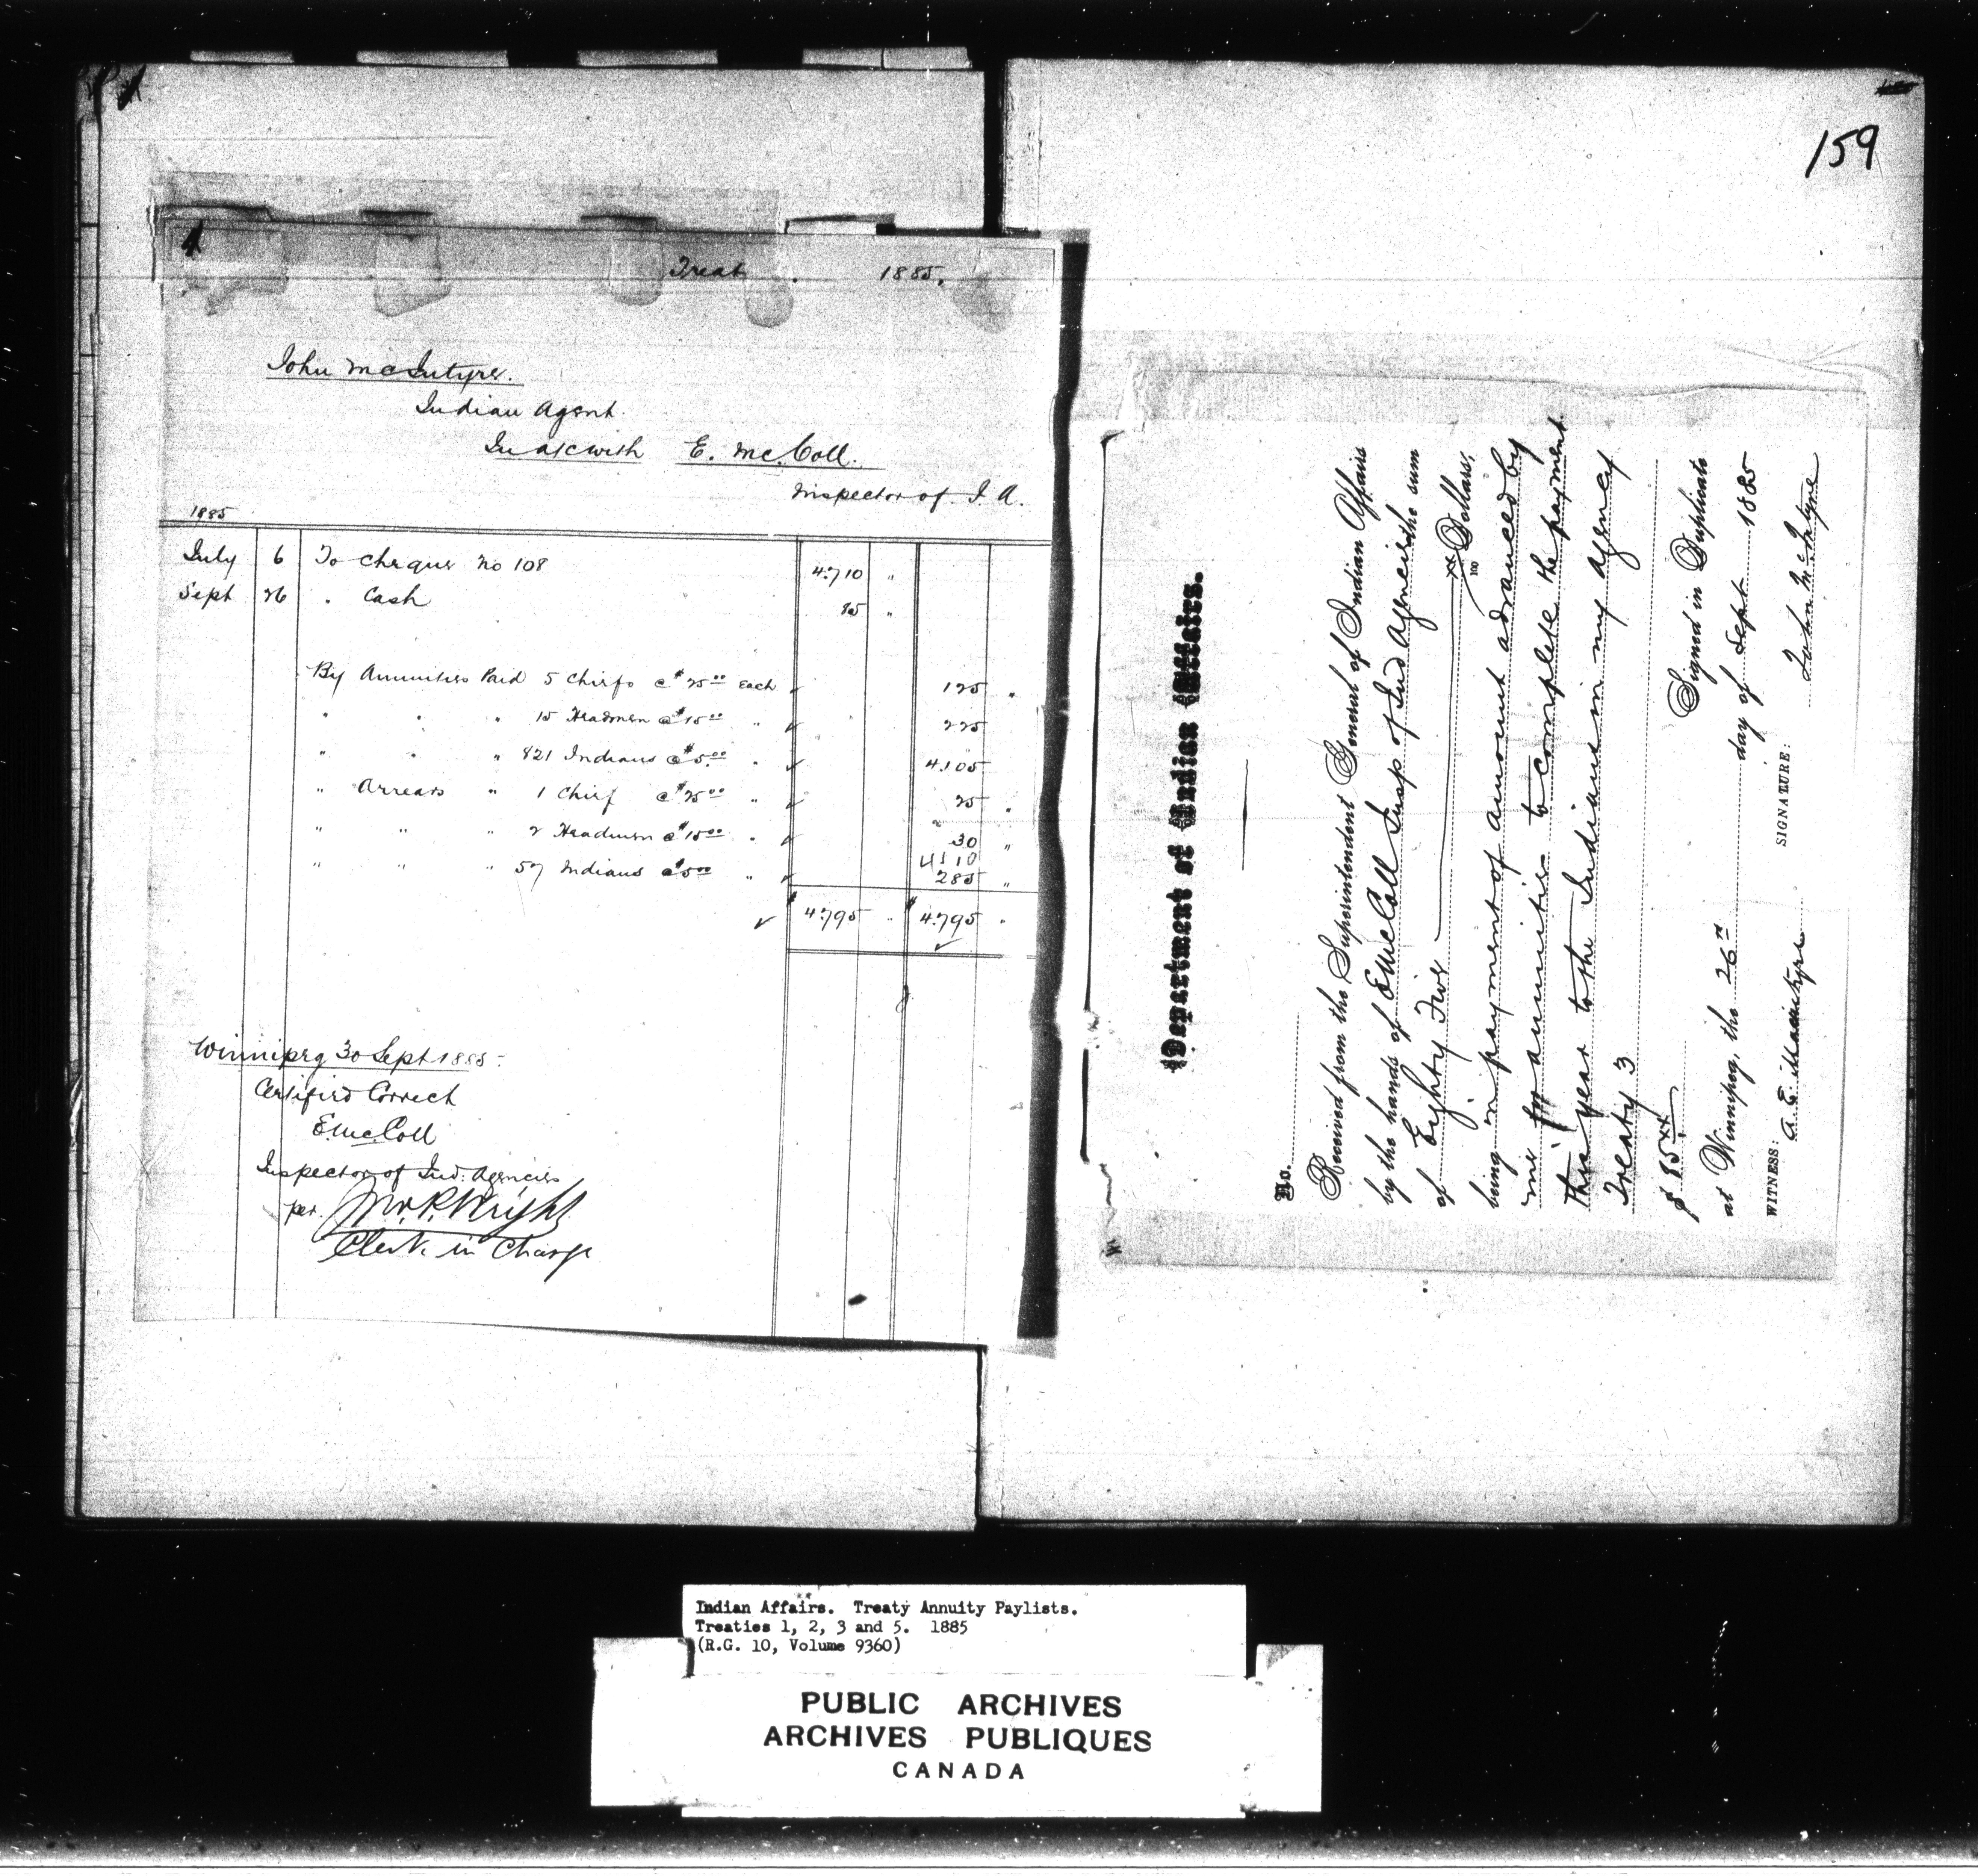 159
Treat 1885.
John McIntyre.
Indian Agent.
In a/c with E. McColl.
Inspector of I. A.
1885
July 6 To Cheque No 108 4710 "
Sept 26 " Cash 85 "
By Annuities Paid 5 Chiefs @ $25.00 Each ✓ 125 "
" " " 15 Headmen @ $15.00 " ✓ 225
" " " 821 Indians @ $5.00 " ✓ 4105
" Arrears " 1 Chief @ $25.00 " ✓ 25 "
" " " 2 Headmen @ $15.00 " ✓ 30 "
4510
" " " 57 Indians @ $5.00 " ✓ 285 "
✓ $ 4795 " $ 4795 "
✓
Winnipeg 30 Sept 1885.
Certified Correct
E. McColl
Inspector of Ind. Agencies
per
Clerk in Charge
Department of Indian Affairs.
No.
Received from the Superintendent General of Indian Affairs
by the hands of E McColl Insp of Ind Agencies the sum
of Eighty Five xx/100 Dollars,
being in payment of amount advanced by
me for annuities to complete the payment
this year to the Indians in my agency
Treaty 3
$ 85 xx Signed in Duplicate
at Winnipeg, the 26th day of Sept 1885
WITNESS: SIGNATURE:
John McIntyre
Indian Affairs. Treaty Annuity Paylists.
Treaties 1, 2, 3 and 5. 1885
(R.G. 10, Volume 9360)
PUBLIC ARCHIVES
ARCHIVES PUBLIQUES
CANADA